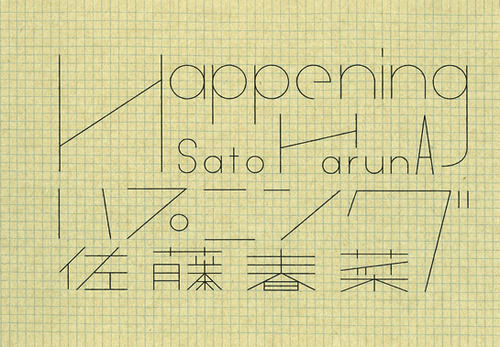 Happening
Sato HarunA
ハプニング
佐藤春菜